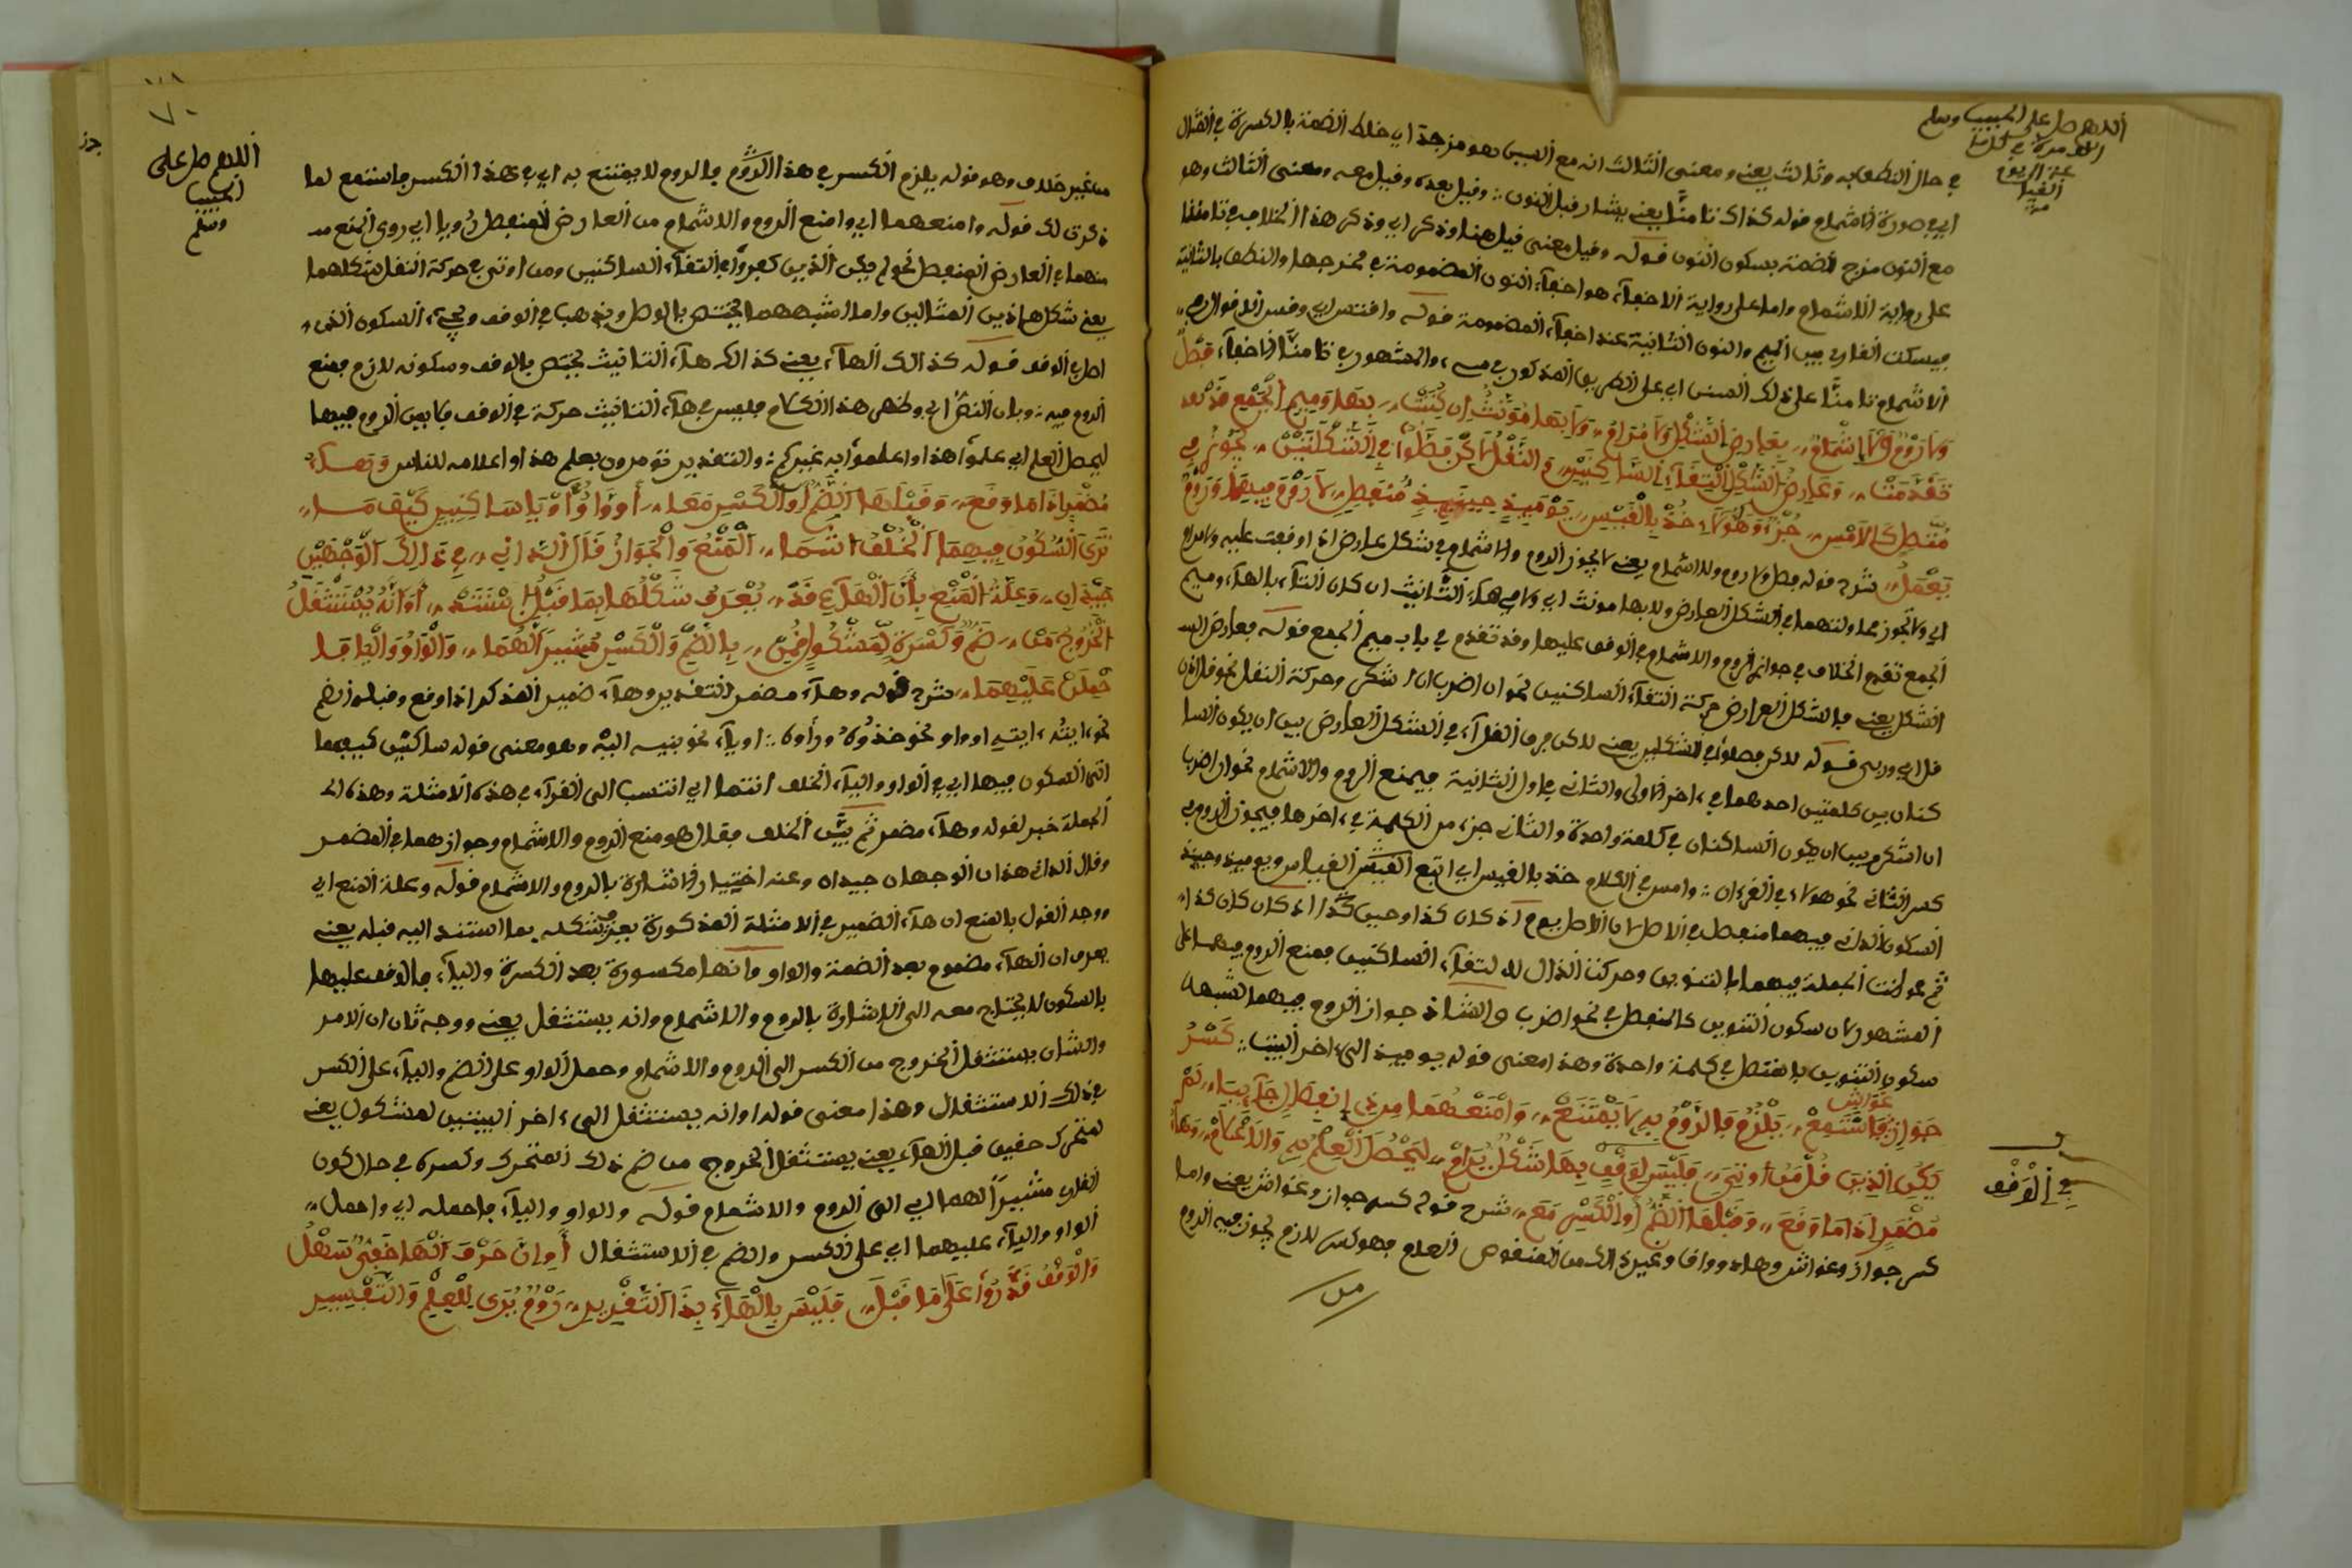 اللهم صل على الحبيب وسلم
في حال النطق به وثالث يعني ومعنى الثالث انه مع السبب هو مزجة اي خلط الضمة بالكسرة في القال
اي في صورة الاشمام قوله كذاك تامنا يعني يشار قبل النون وقيل بعده وقيل معه ومعنى الثالث وهو
مع النون مزج الضمة بسكون النون قوله وقيل معنى قيل هنا وذكر اي وذكر هذا الخلاف في تامنا
على رواية الاشمام واما على رواية الاخفاء هو اخفاء النون المضمومة في مخرجها والنطق بالثانية
فيسكت القارئ بين الميم والنون الثانية عند اخفاء المضمومة قوله وافتس اي وقس الاقوال في
الاشمام تامنا على ذلك المس اي على الطريق المذكور في سيء والمشهور في تامنا الاخفاء فصل
ولا روم ولا اشمام بعارض الشكل ولا مرام ولا بها مؤنث ان كتبت بها وميم الجمع قد بعد
تقدمتا وعارض الشكل التقاء الساكنين والنقل لاكن فصلوا في الشكلين يجوز في
متصل كالامس جزء وهؤلاء خذ بالقيس يومئذ حينئذ منفصل لا روم فيهما وروم
يعمل شرح قوله فصل ولا روم ولا اشمام يعني لا يجوز الروم والاشمام في شكل عارض اذا وقفت عليه ولا مرام
اي ولا تجوز محاولتهما في الشكل العارض ولا بها مونث اي ولا في هاء التانيث ان كان التاء بالهاء وميم
الجمع تقدم الخلاف في جواز الروم والاشمام في الوقف عليها وقد تقدم في باب ميم الجمع قوله فعارض الـ
الشكل يعني فالشكل العارض حركة التقاء الساكنين نحو ان اضرب ان اشكر وحركة النقل نحو قل ان
قل اي وربى قوله لاكن فصلوا في الشكلين يعني لاكن فرق القراء في الشكل العارض بين ان يكون السا
كنان بين كلمتين احدهما في اخر الاولى والثاني في اول الثانية فيمنع الروم والاشمام نحو ان اضرب
ان اشكر وبين ان يكون الساكنان في كلمة واحدة والثاني جزء من الكلمة في اخرها فيجوز الروم في
كسر الثاني نحو هؤلاء في القرءان وامس في الكلام خذ بالقيس اي اتبع القيس القياس ويومئذ وحينئذ
السكون الذي فيهما منفصل في الاصل لان الاصل يوم اذ كان كذا وحين كذا اذ كان كان كذا
ثم عوضت الجملة فيهما بالتنوين وحركت الذال لالتقاء الساكنين فمنع الروم فيهما على
المشهور لان سكون التنوين كالمنفصل في نحو اضرب والشاذ جواز الروم فيهما لشبهه
سكون التنوين بالمتصل في كلمة واحدة وهذا معنى قوله يوميذ الى ءاخر البيت كسر
جواز غواش فاستمع يلزم فالروم به لا يمتنع وامنعهما من ذي انفصل جاء بياء لم
يكن الذين قل من اوتي فليس لوقف بها شكل يرام ليحصل العلم به والاعلام وهاء
مضمر اذا ما وقع وقبلها الضم او الكسر مع شرح قوله كسر جواز وغواش يعني واما
كسر جواز وغواش وهاد وواق وغير ذالك من المنقوص العلم فهو كسر لازم يجوز فيه الروم
في الوقف
من
اللهم صل على
الحبيب
وسلم
من غير خلاف وهو قوله يلزم الكسر في هذا الروم فالروم لا يمتنع به اي في هذا الكسر فاستمع لما
ذكرت لك قوله وامنعهما اي وامنع الروم والاشمام من العارض المنفصل رويا اي روى المنع مـ
منهما في العارض المنفصل نحو لم يكن الذين كفروا في التقاء الساكنين ومن اوتي في حركة النقل شكلهما
يعني شكل هاذين المثالين واما اشبههما يختص بالوصل ويذهب في الوقف ويجيء السكون الذي
اصل الوقف قوله كذالك الهاء يعني كذالك هاء التانيث يختص بالوقف وسكونه لازم فمنع
الروم فيه وبان النظر اي وظهر هذا الكلام فليس في هاء التانيث حركة في الوقف فاين الروم فيها
ليحصل العلم اي علموا هذا واعلموا به غيركم والتقدير تومرون بعلم هذا واعلامه للناس وهاء
مضمر اذا ما وقع وقبلها الضم او الكسر معا او واو او ياء ساكنين كيف ما
ترى السكون فيهما الخلف انتما المنع والجواز قال الداني في ذالك الوجهين
جيدان وعلة المنع بان الهاء قد يعرف شكلها بما قبل استند او انه يستثقل
الخروج من ضم وكسرة لمشكول قمن بالضم والكسر مشيرا لهما والواو والياء ما
حمل عليهما شرح قوله وهاء مضمر التقدير وهاء ضمير المذكر اذا وقع وقبله ضم
نحو ايته ايتيه او واو نحو خذوه ورأوه او ياء نحو بنيه اليه وهو معنى قوله ساكنين كيفما
اتى السكون فيها اي في الواو والياء الخلف انتما اي انتسب الى القراء في هذه الامثلة وهذه الـ
الجملة خبر لقوله وهاء مضمر ثم بين الخلف فقال هو منع الروم والاشمام وجوازهما في المضمر
وقال الداني هذان الوجهان جيدان وعنه اختيار الاشارة بالروم والاشمام قوله وعلة المنع اي
ووجه القول بالمنع ان هاء الضمير في الامثلة المذكورة يعرف شكله بما استند اليه قبله يعني
يعرف ان الهاء مضموم بعد الضمة والواو وانها مكسورة بعد الكسرة والياء فالوقف عليها
بالسكون لا يحتاج معه الى الاشارة بالروم والاشمام وانه يستثقل يعني ووجه ثان ان الامر
والشان يستثقل الخروج من الكسر الى الروم والاشمام وحمل الواو على الضم والياء على الكسر
في ذلك الاستثقال وهذا معنى قوله او انه يستثقل الى ءاخر البيتين لمشكول يعني
لمتحرك حقيق قبل الهاء يعني يستثقل الخروج من ضم ذلك المتحرك وكسره في حال كون
القارئ مشيرا لهما اي الى الروم والاشمام قوله والواو والياء فاحمله اي واحمل
الواو والياء عليهما اي على الكسر والضم في الاستثقال او ان حرف الهاء خفي سهل
والوقف قدروا على ما قبل فليس بالهاء بذا التقدير روم يرى للعلم والتفسير